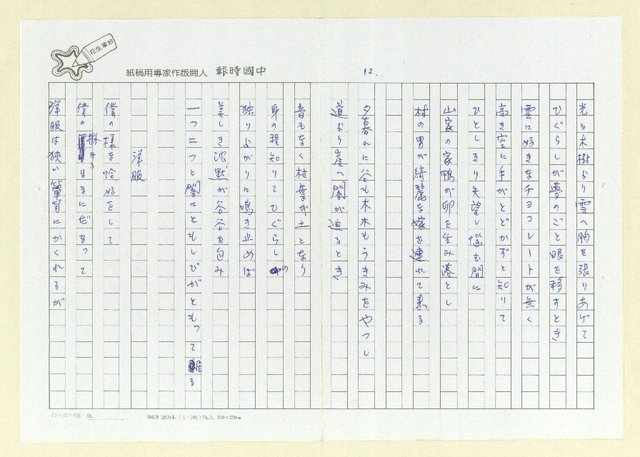 中國時報 人間版作家專用稿紙
12.
光る木樹より雲へ胸を張りあげて
ひぐらしが夢のごと眼を移すとき
雲に好きなチョコレートが無く
高き空に手がとどかずと知りて
ひとしきり失望し 悩む間に
山家の家鴨が卵を生み落とし
村の男が綺麗な嫁を連れて来る
夕暮れに谷も木木もうきみをやつし
遠より 闇が迫るとき
音もなく枝葉が土となり
身の程知りてひぐらしの
独りよがりに鳴き止めば
美しき沈黙が谷谷を包み
一つ二つと闇にともしびがともって
洋服
僕の様な恰好をして
僕の まにだまって
洋服は狭い にかくれるが